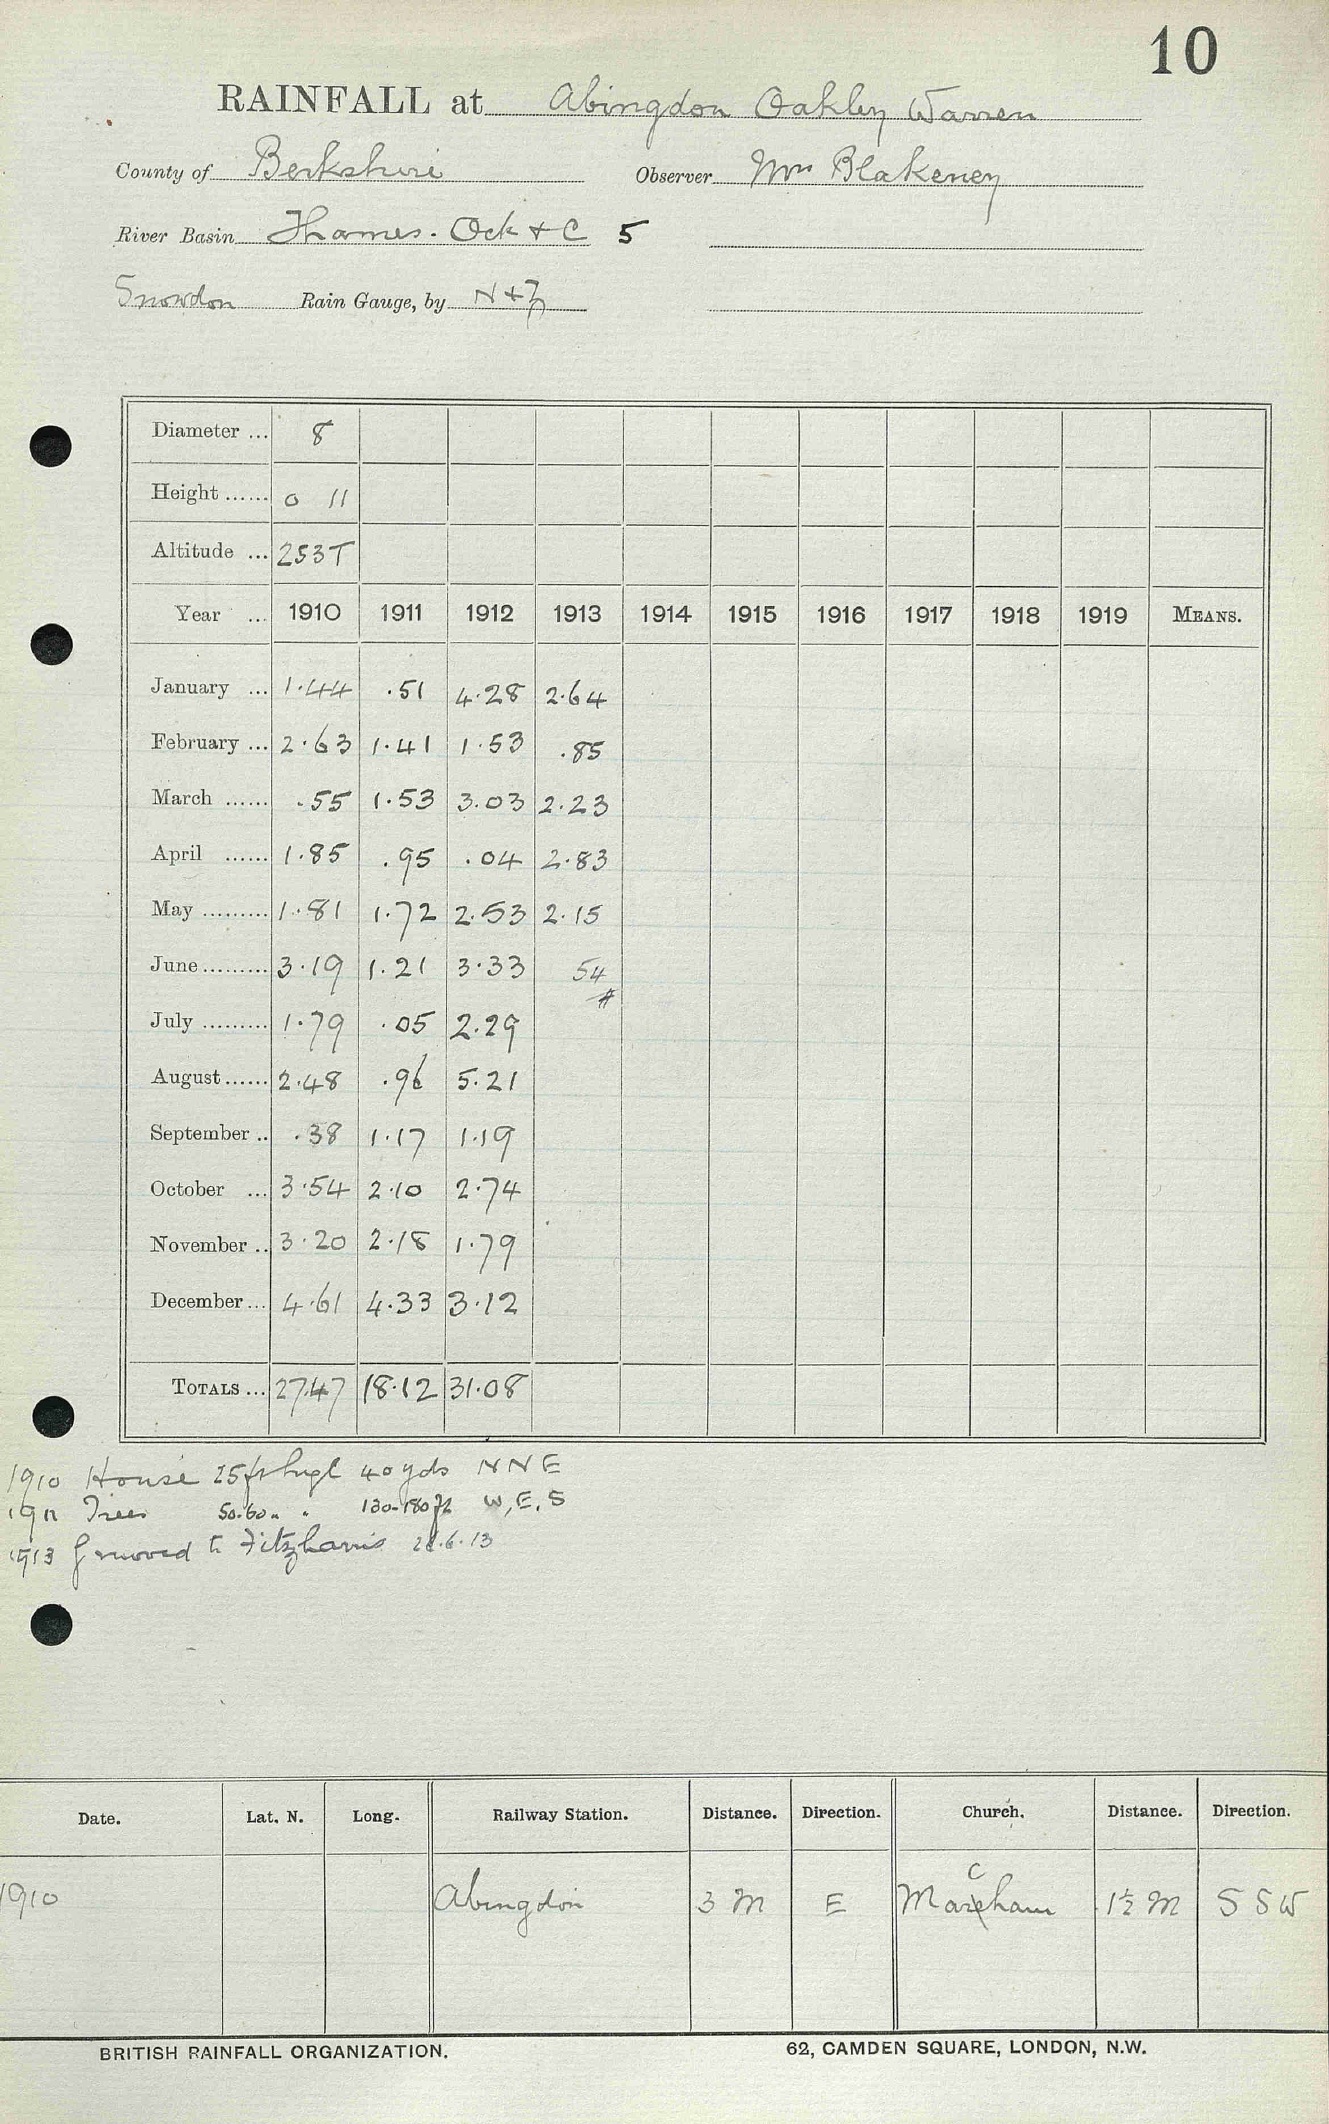 10
RAINFALL at Abingdon Oakley Warren
County of Berkshire Observer Mrs Blakeney
River Basin Thames. Ock & C 5
Snowdon Rain Gauge, by N+Z
Diameter ... 8
Height ...... 0 11
Altitude ... 253T
Year ... 1910 1911 1912 1913 1914 1915 1916 1917 1918 1919 MEANS.
January ... 1.44 .51 4.28 2.64
February ... 2.63 1.41 1.53 .85
March ...... .55 1.53 3.03 2.23
April ...... 1.85 .95 .04 2.83
May ......... 1.81 1.72 2.53 2.15
June ......... 3.19 1.21 3.33 54
July ......... 1.79 .05 2.29
August ...... 2.48 .96 5.21
September .. .38 1.17 1.19
October ... 3.54 2.10 2.74
November .. 3.20 2.18 1.79
December ... 4.61 4.33 3.12
TOTALS ... 27.47 18.12 31.08
1910 House 25ft high 40 yds NNE
1911 Trees 50-60 " " 130-180 ft W, E, S
1913 G removed to Fitzharris 28.6.13
Date. Lat. N. Long. Railway Station. Distance. Direction. Church. Distance. Direction.
1910 Abingdon 3 M E Marcham 1½ M S S W
BRITISH RAINFALL ORGANIZATION. 62, CAMDEN SQUARE, LONDON, N.W.